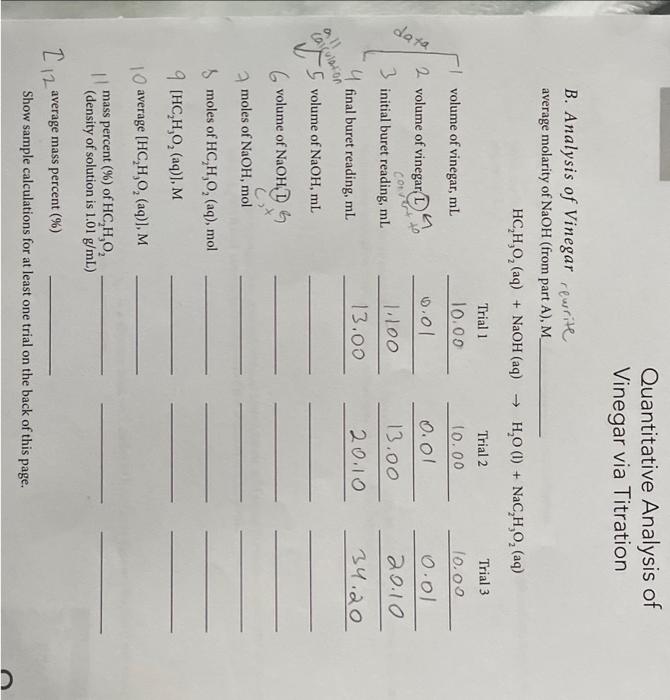 Quantitative Analysis of
Vinegar via Titration
B. Analysis of Vinegar rewrite
average molarity of NaOH (from part A), M
HC₂H₃O₂ (aq) + NaOH (aq) → H₂O (l) + NaC₂H₃O₂ (aq)
Trial 1 Trial 2 Trial 3
data
1 volume of vinegar, mL 10.00 10.00 10.00
2 volume of vinegar, L 0.01 0.01 0.01
convert to
3 initial buret reading, mL 1.100 13.00 20.10
4 final buret reading, mL 13.00 20.10 34.20
all
calculation
5 volume of NaOH, mL
6 volume of NaOH, L
7 moles of NaOH, mol
8 moles of HC₂H₃O₂ (aq), mol
9 [HC₂H₃O₂ (aq)], M
10 average [HC₂H₃O₂ (aq)], M
11 mass percent (%) of HC₂H₃O₂
(density of solution is 1.01 g/mL)
12 average mass percent (%)
Show sample calculations for at least one trial on the back of this page.